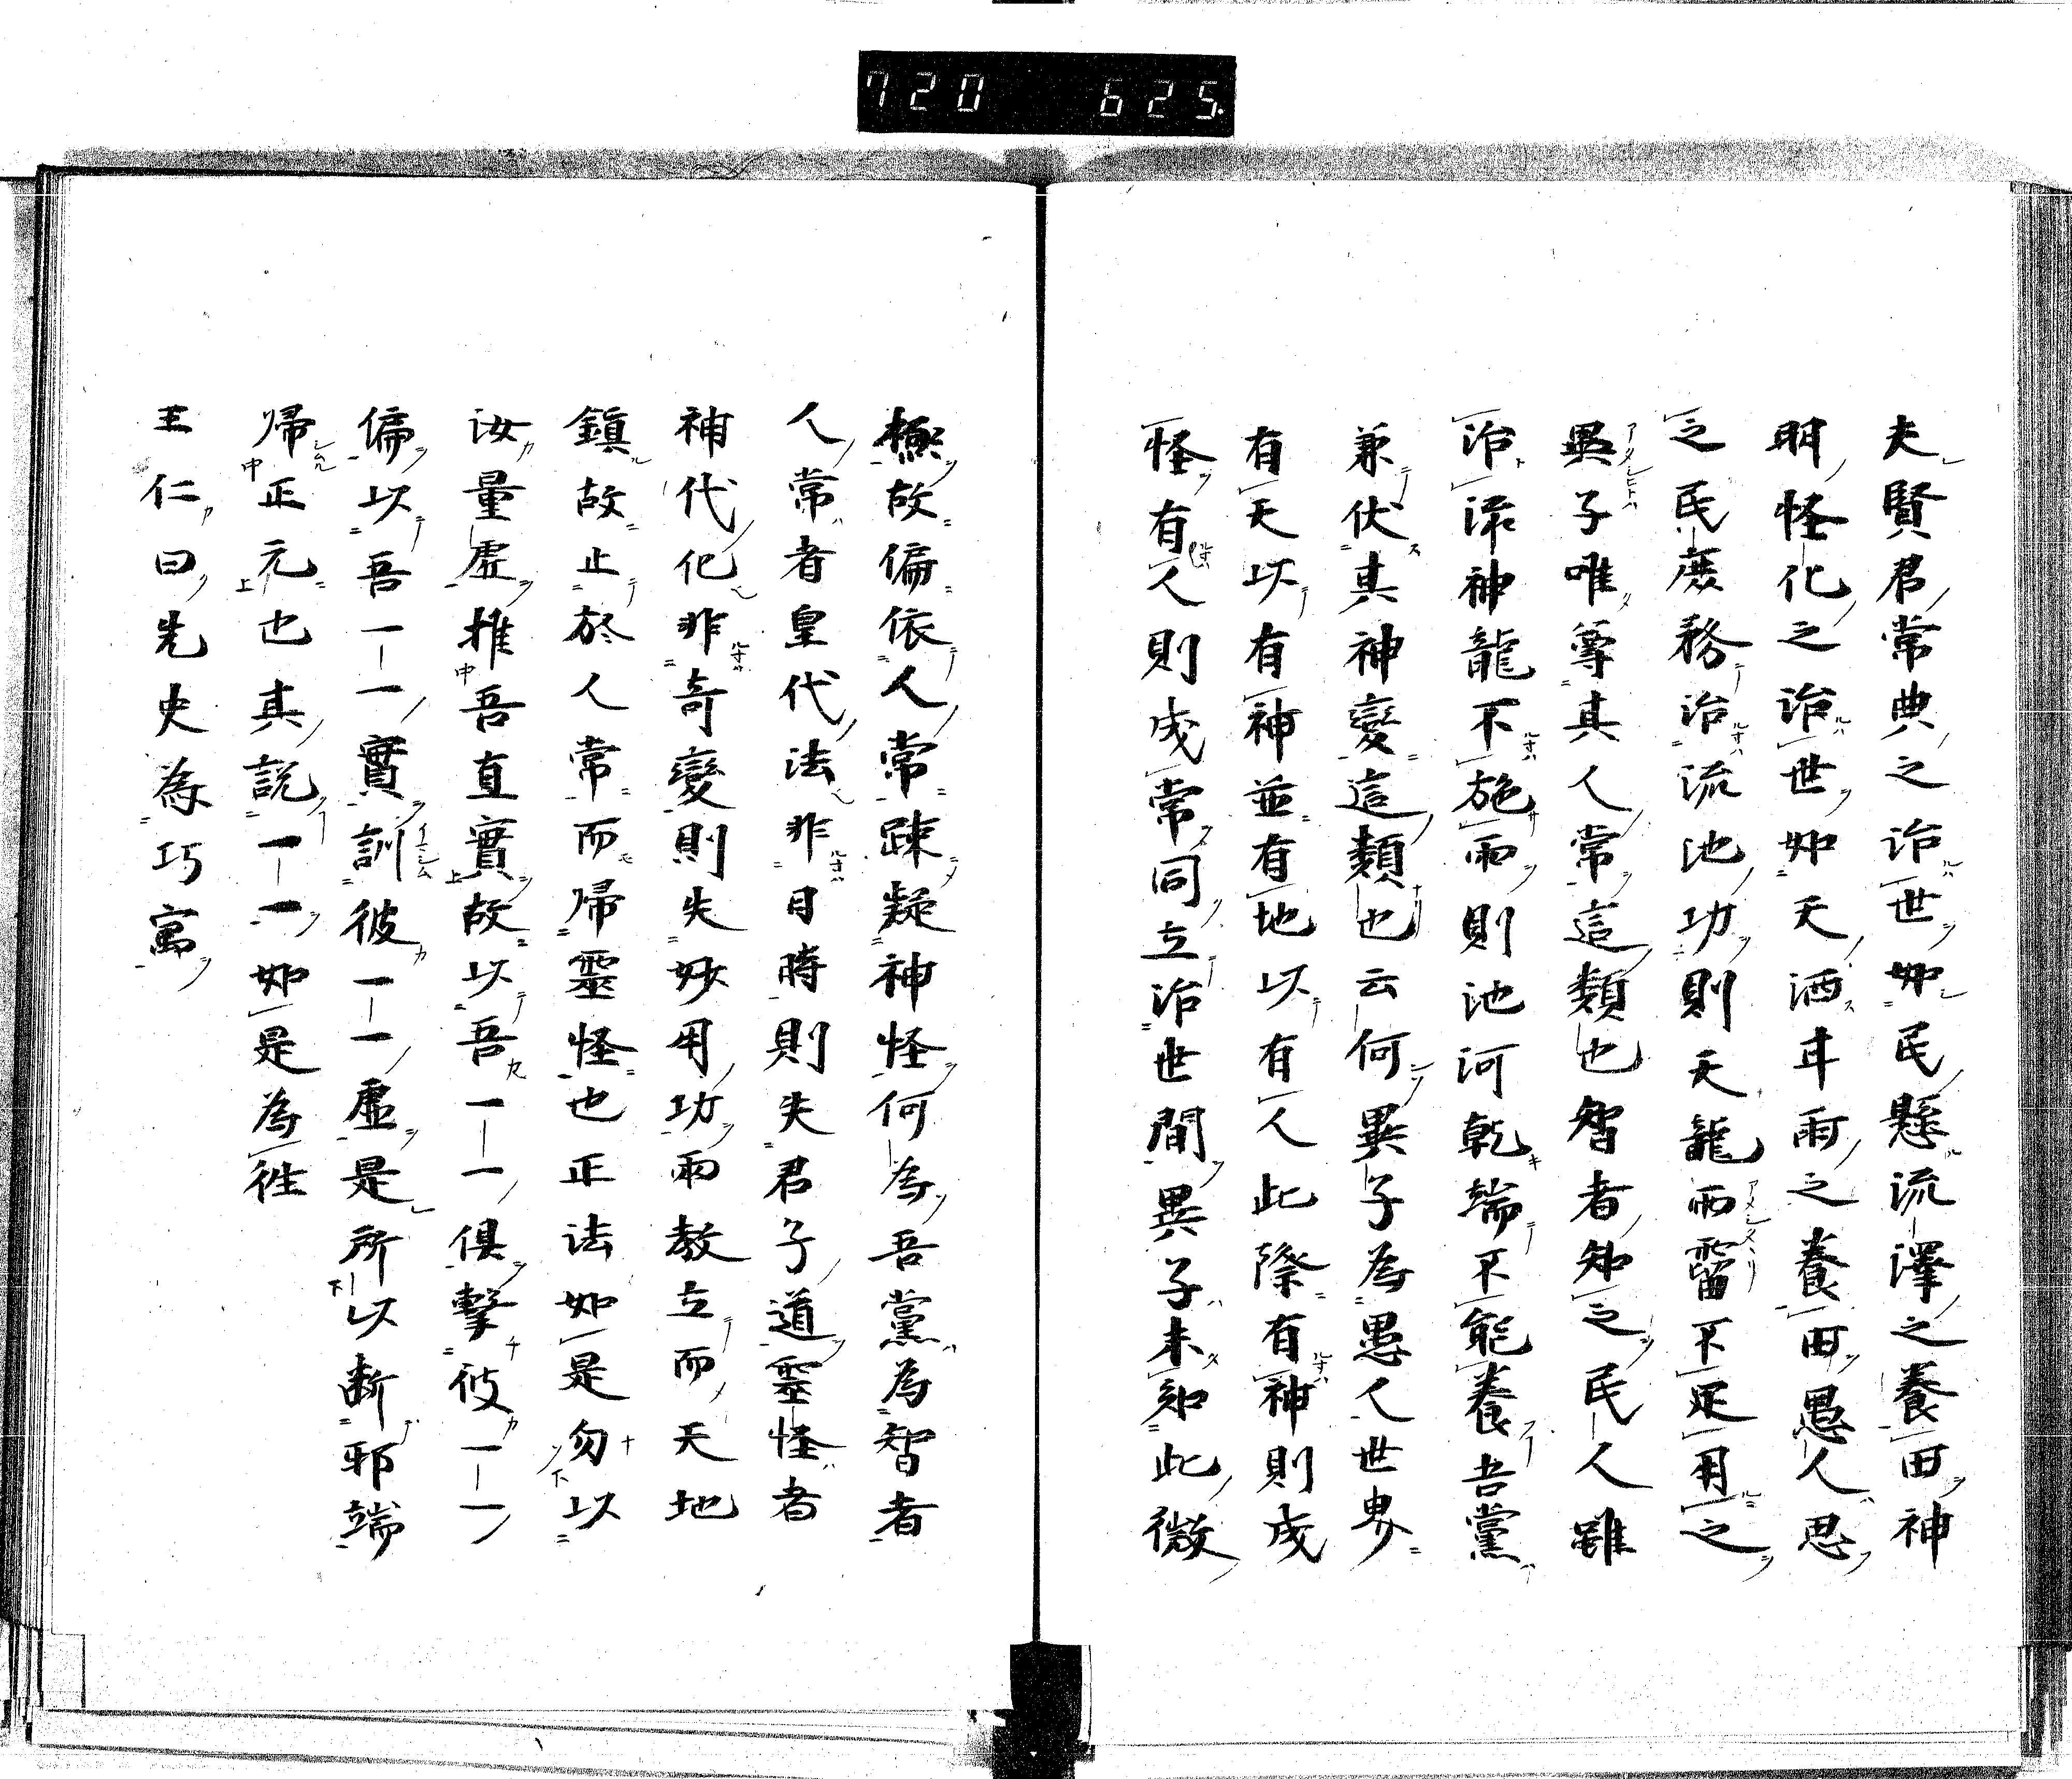 720 625
夫賢君常典之治世如民懸流澤之養田神
明怪化之治世如天洒年雨之養田愚人忍
之民廢務治流池功則天龍雨霤不足用之
異子唯尊其人常這類也智者知之民人雖
治流神龍不施雨則池河乾端不能養吾黨
兼伏其神變這類也云何異子為愚人世界
有天以有神並有地以有人此際有神則成
怪有人則成常同立治世間異子未知此微
極故偏依人常疎疑神怪何為吾黨為智者
人常者皇代法非日時則失君子道靈怪者
神代化非奇變則失妙用功兩教立而天地
鎮故止於人常而歸靈怪也正法如是勿以
汝量虛推吾直實故以吾一一俱擊彼一一
偏以吾一一實訓彼一一虛是所以断邪端
帰正元也其説一一如是為徃
王仁曰先史為巧寓